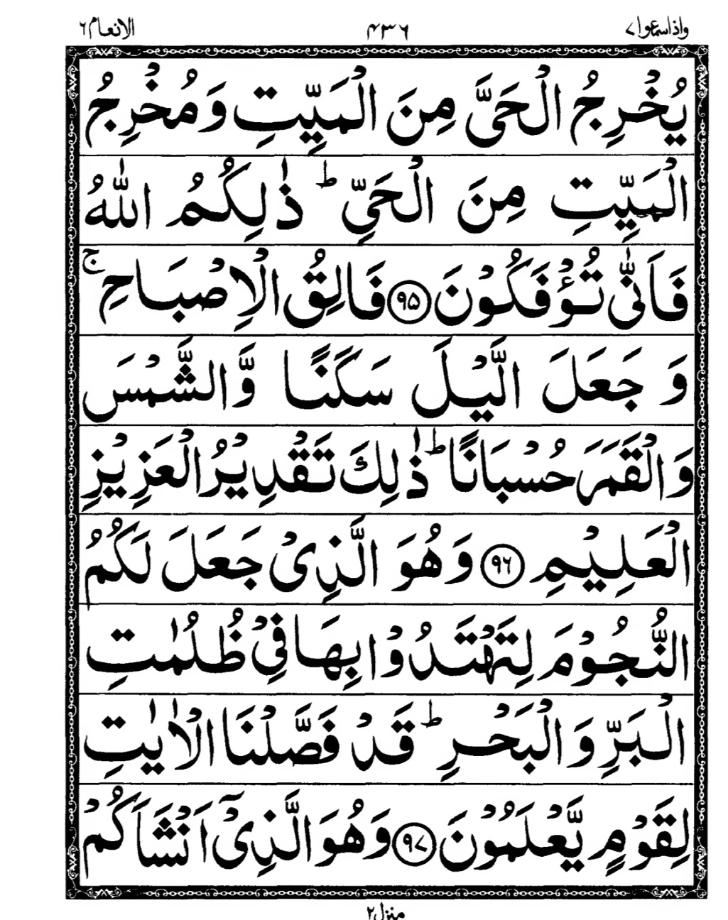 واذاسمعوا۷ ۴۳۶ الانعام۶
يُخْرِجُ الْحَىَّ مِنَ الْمَيِّتِ وَمُخْرِجُ
الْمَيِّتِ مِنَ الْحَىِّ ؕ ذٰلِكُمُ اللّٰهُ
فَاَنّٰى تُؤْفَكُوْنَ ۹۵ فَالِقُ الْاِصْبَاحِ ۚ
وَ جَعَلَ الَّيْلَ سَكَنًا وَّالشَّمْسَ
وَالْقَمَرَ حُسْبَانًا ؕ ذٰلِكَ تَقْدِيْرُ الْعَزِيْزِ
الْعَلِيْمِ ۹۶ وَهُوَ الَّذِىْ جَعَلَ لَكُمُ
النُّجُوْمَ لِتَهْتَدُوْا بِهَا فِىْ ظُلُمٰتِ
الْبَرِّ وَالْبَحْرِ ؕ قَدْ فَصَّلْنَا الْاٰيٰتِ
لِقَوْمٍ يَّعْلَمُوْنَ ۹۷ وَهُوَ الَّذِىْۤ اَنْشَاَكُمْ
منزل۲